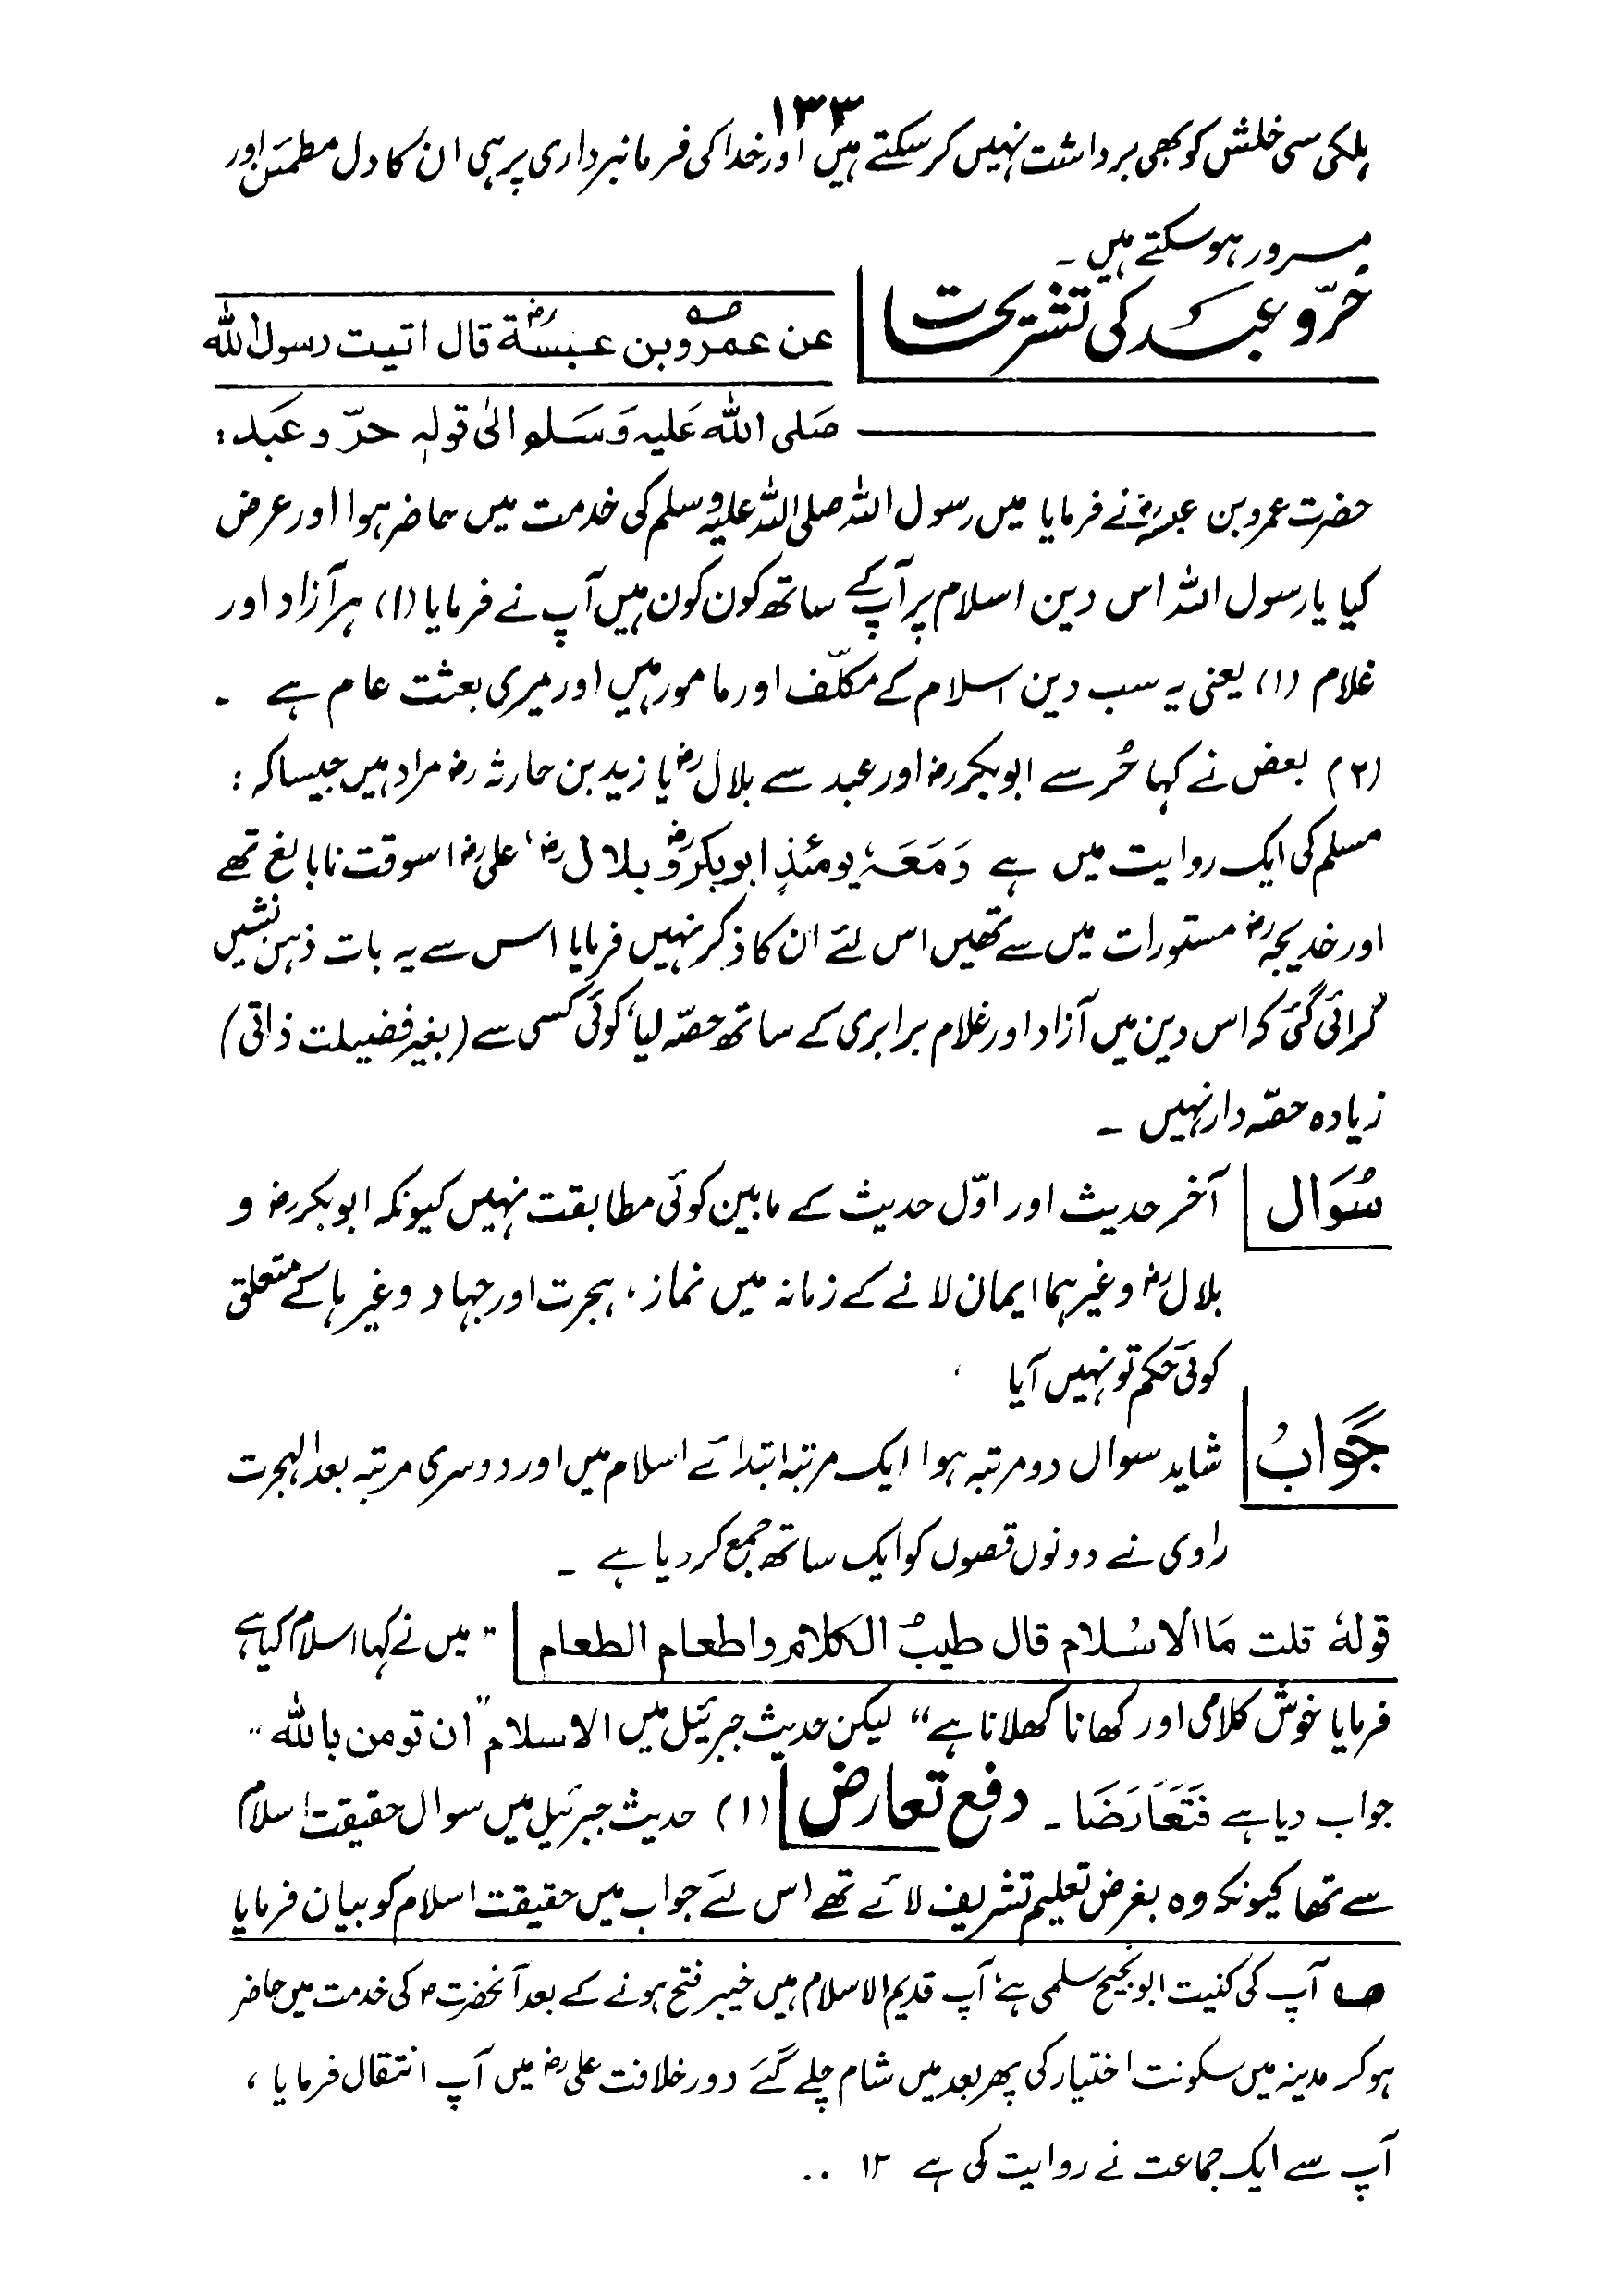 ۱۳۳
ہلکی سی خلش کو بھی برداشت نہیں کر سکتے ہیں اور خدا کی فرمانبرداری پر ہی ان کا دل مطمئن اور
مسرور ہو سکتے ہیں ۔
حُرّ و عبد کی تشریحات
عن عمرو بن عبسة رض قال اتیت رسول الله
صَلی الله عَلیہ وَسَلم الٰی قولہٖ حرّ و عَبَد :
حضرت عمرو بن عبسہ رض نے فرمایا میں رسول اللہ صلی اللہ علیہ وسلم کی خدمت میں حاضر ہوا اور عرض
کیا یا رسول اللہ اس دین اسلام پر آپ کے ساتھ کون کون ہیں آپ نے فرمایا (۱) ہر آزاد اور
غلام (۱) یعنی یہ سب دین اسلام کے مکلّف اور مامور ہیں اور میری بعثت عام ہے ۔
(۲) بعض نے کہا حُر سے ابوبکر رض اور عبد سے بلال رض یا زید بن حارثہ رض مراد ہیں جیسا کہ :
مسلم کی ایک روایت میں ہے وَمَعَہٗ یومئذٍ ابوبکر رض و بلال رض ، علی رض اسوقت نابالغ تھے
اور خدیجہ رض مستورات میں سے تھیں اس لئے ان کا ذکر نہیں فرمایا اسس سے یہ بات ذہن نشیں
کرائی گئی کہ اس دین میں آزاد اور غلام برابری کے ساتھ حصّہ لیا ، کوئی کسی سے (بغیر فضیلت ذاتی)
زیادہ حصّہ دار نہیں ۔
سُوَال آخر حدیث اور اوّل حدیث کے مابین کوئی مطابقت نہیں کیونکہ ابوبکر رض و
بلال رض وغیرہما ایمان لانے کے زمانہ میں نماز ، ہجرت اور جہاد وغیرہا کے متعلق
کوئی حکم تو نہیں آیا ،
جَوابُ شاید سوال دو مرتبہ ہوا ایک مرتبہ ابتدائے اسلام میں اور دوسری مرتبہ بعد الہجرت
راوی نے دونوں قصوں کو ایک ساتھ جمع کر دیا ہے ۔
قولهٗ قلت مَا الاسْلام قال طیبُ الکلام واطعام الطعام " میں نے کہا اسلام کیا ہے
فرمایا خوش کلامی اور کھانا کھلانا ہے " لیکن حدیث جبرئیل میں الاسلام " ان تومن بالله "
جواب دیا ہے فَتَعَارَضَا ۔ دفع تعارض (۱) حدیث جبرئیل میں سوال حقیقت اسلام
سے تھا کیونکہ وہ بغرض تعلیم تشریف لائے تھے اس لئے جواب میں حقیقت اسلام کو بیان فرمایا
صـ آپ کی کنیت ابو نجیح سلمی ہے ، آپ قدیم الاسلام ہیں خیبر فتح ہونے کے بعد آنحضرت ؐ کی خدمت میں حاضر
ہو کر مدینہ میں سکونت اختیار کی پھر بعد میں شام چلے گئے دور خلافت علی رض میں آپ انتقال فرمایا ،
آپ سے ایک جماعت نے روایت کی ہے ۱۲ ..